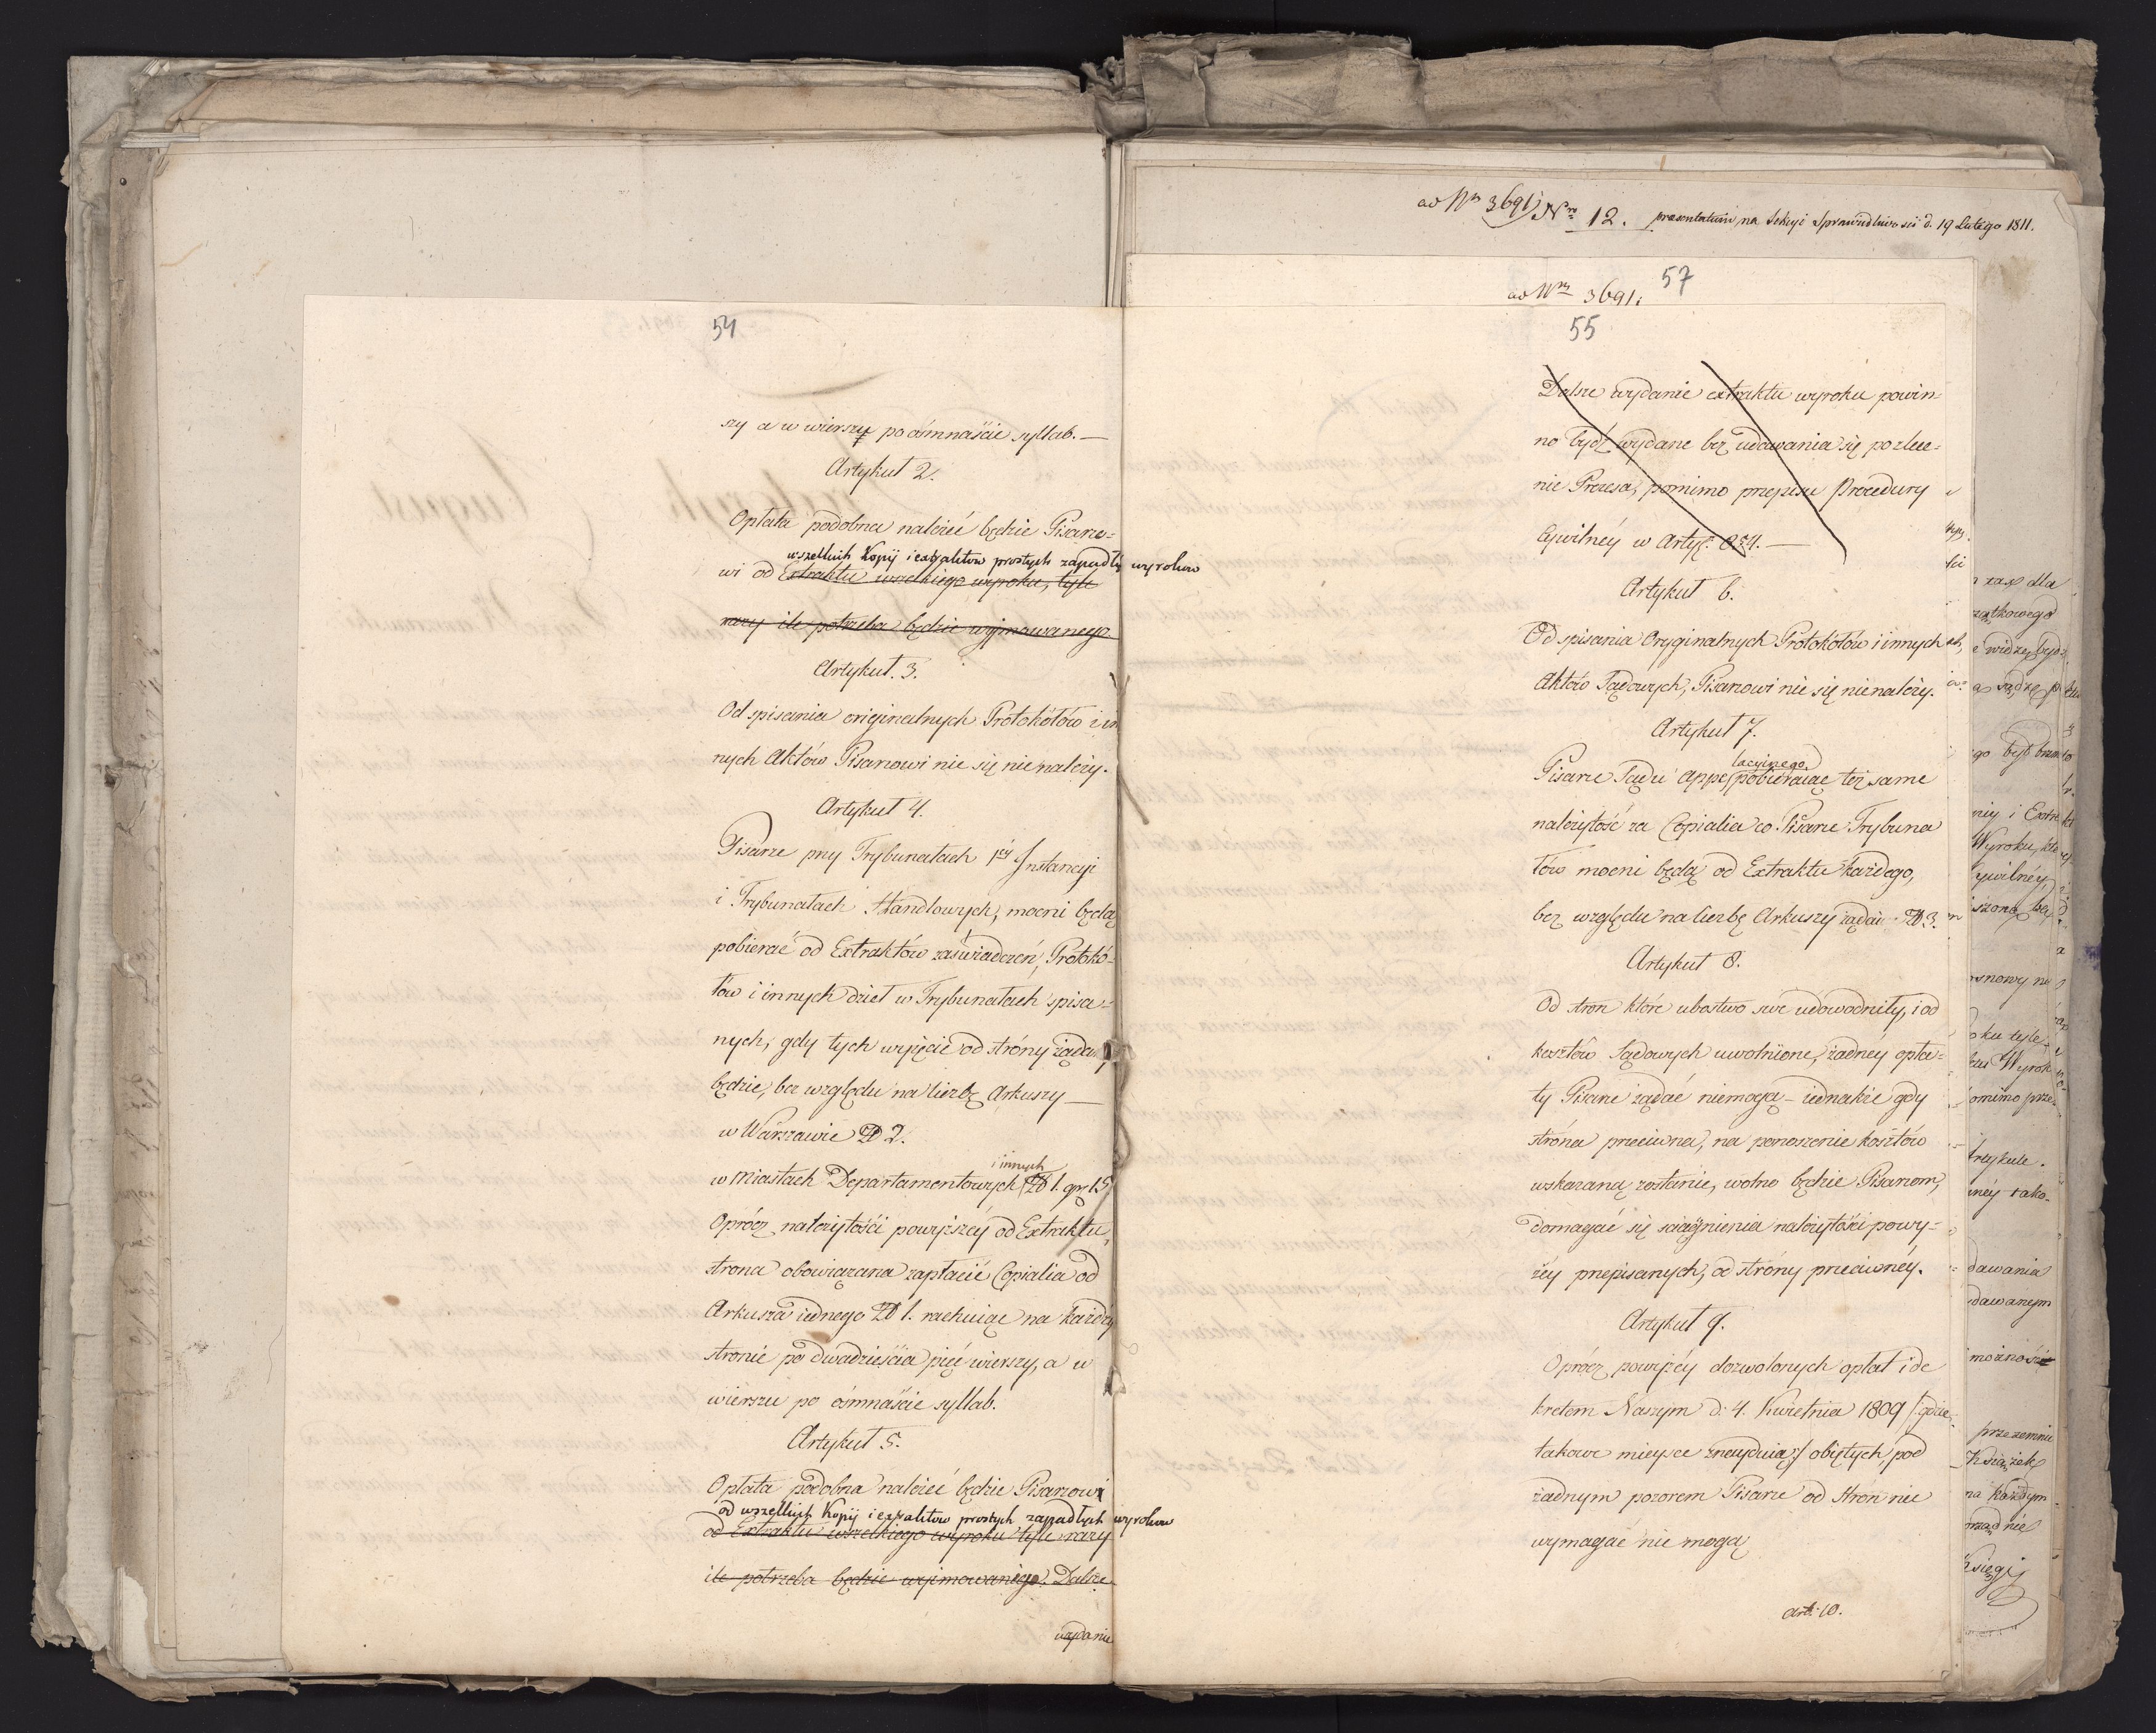 54
szy a w wierszu po ośmnaście syllab. —
Artykuł 2.
Opłata podobna należeć będzie Pisarzo=
wszelkich Kopij i extraktów prostych zapadłych wyroków
wi od Extraktu wszelkiego wyroku, tyle
razy ile potrzeba będzie wyjmowanego.
Artykuł. 3.
Od spisania originalnych Protokółów i in
nych Aktów Pisarzowi nic się nienależy.
Artykuł 4.
Pisarze przy Trybunałach 1éy Instancyi
i Trybunałach Handlowych, mocni będą
pobierać od Extraktów zaświadczeń, Protokó=
łów i innych dzieł w Trybunałach spisa=
nych, gdy tych wyjęcie od stróny żądan
będzie, bez względu na liczbę Arkuszy —
w Warszawie Zł 2.
i innych
w Miastach Departamentowych Zł 1. gr 15
Oprócz należytości powyższéy od Extraktu,
strona obowiązana zapłacić Copialia od
Arkusza iednego Zł 1. rachuiąc na każdéy
stronie po dwadzieścia pięć wierszy, a w
wierszu po ośmnaście syllab.
Artykuł 5.
Opłata podobna należeć będzie Pisarzowi
od wszelkich Kopij i extraktów prostych zapadłych wyroków
od Extraktu wszelkiego wyroku tyle razy
ile potrzeba będzie wyimowanego. Dalsze
wydanie
ad Nrm 3691 Nro 12. praesentatum na Sekcyi Sprawiedliwości d. 19 Lutego 1811.
57
ad Nrm 3691.
55
Dalsze wydanie extraktu wyroku powin=
no bydź wydane bez udawania się po zlece=
nie Prezesa, pomimo przepisu Procedury
Cywilnéy w Artyk. 854. —
Artykuł 6.
Od spisania Oryginalnych Protokółów i innych
Aktów Sądowych, Pisarzowi nic się nienależy.
Artykuł 7.
lacyinego
Pisarze Sądu Appel pobieraiąc też same
należytość za Copialia co Pisarze Trybuna
łów mocni będą od Extraktu każdego,
bez względu na liczbę Arkuszy żądać Zł 3.
Artykuł 8.
Od stron które ubostwo swe udowodniły, i od
kosztów Sądowych uwolnione, żadnéy opła=
ty Pisarze żądać niemogą — iednakże gdy
stróna przeciwna, na ponoszenie kosztów
wskazaną zostanie, wolno będzie Pisarzom,
domagać się sciągnienia należytości powy=
żéy przepisanych, od stróny przeciwnéy.
Artykuł 9.
Oprócz powyżéy dozwolonych opłat i de
kretem Naszym d: 4. Kwietnia 1809 /: gdzie
takowe mieysce znayduią :/ obiętych, pod
żadnym pozorem Pisarze od Stron nic
wymagać nie mogą
Art: 10.
zaś dla
widzę bydź
Wyroku, któ
Cywilnéy
oku tyle
Wyrok
omimo prze=
trzykule.
dawania
dawanym
możności
przezemnie
Książek
na każdym
Księgi